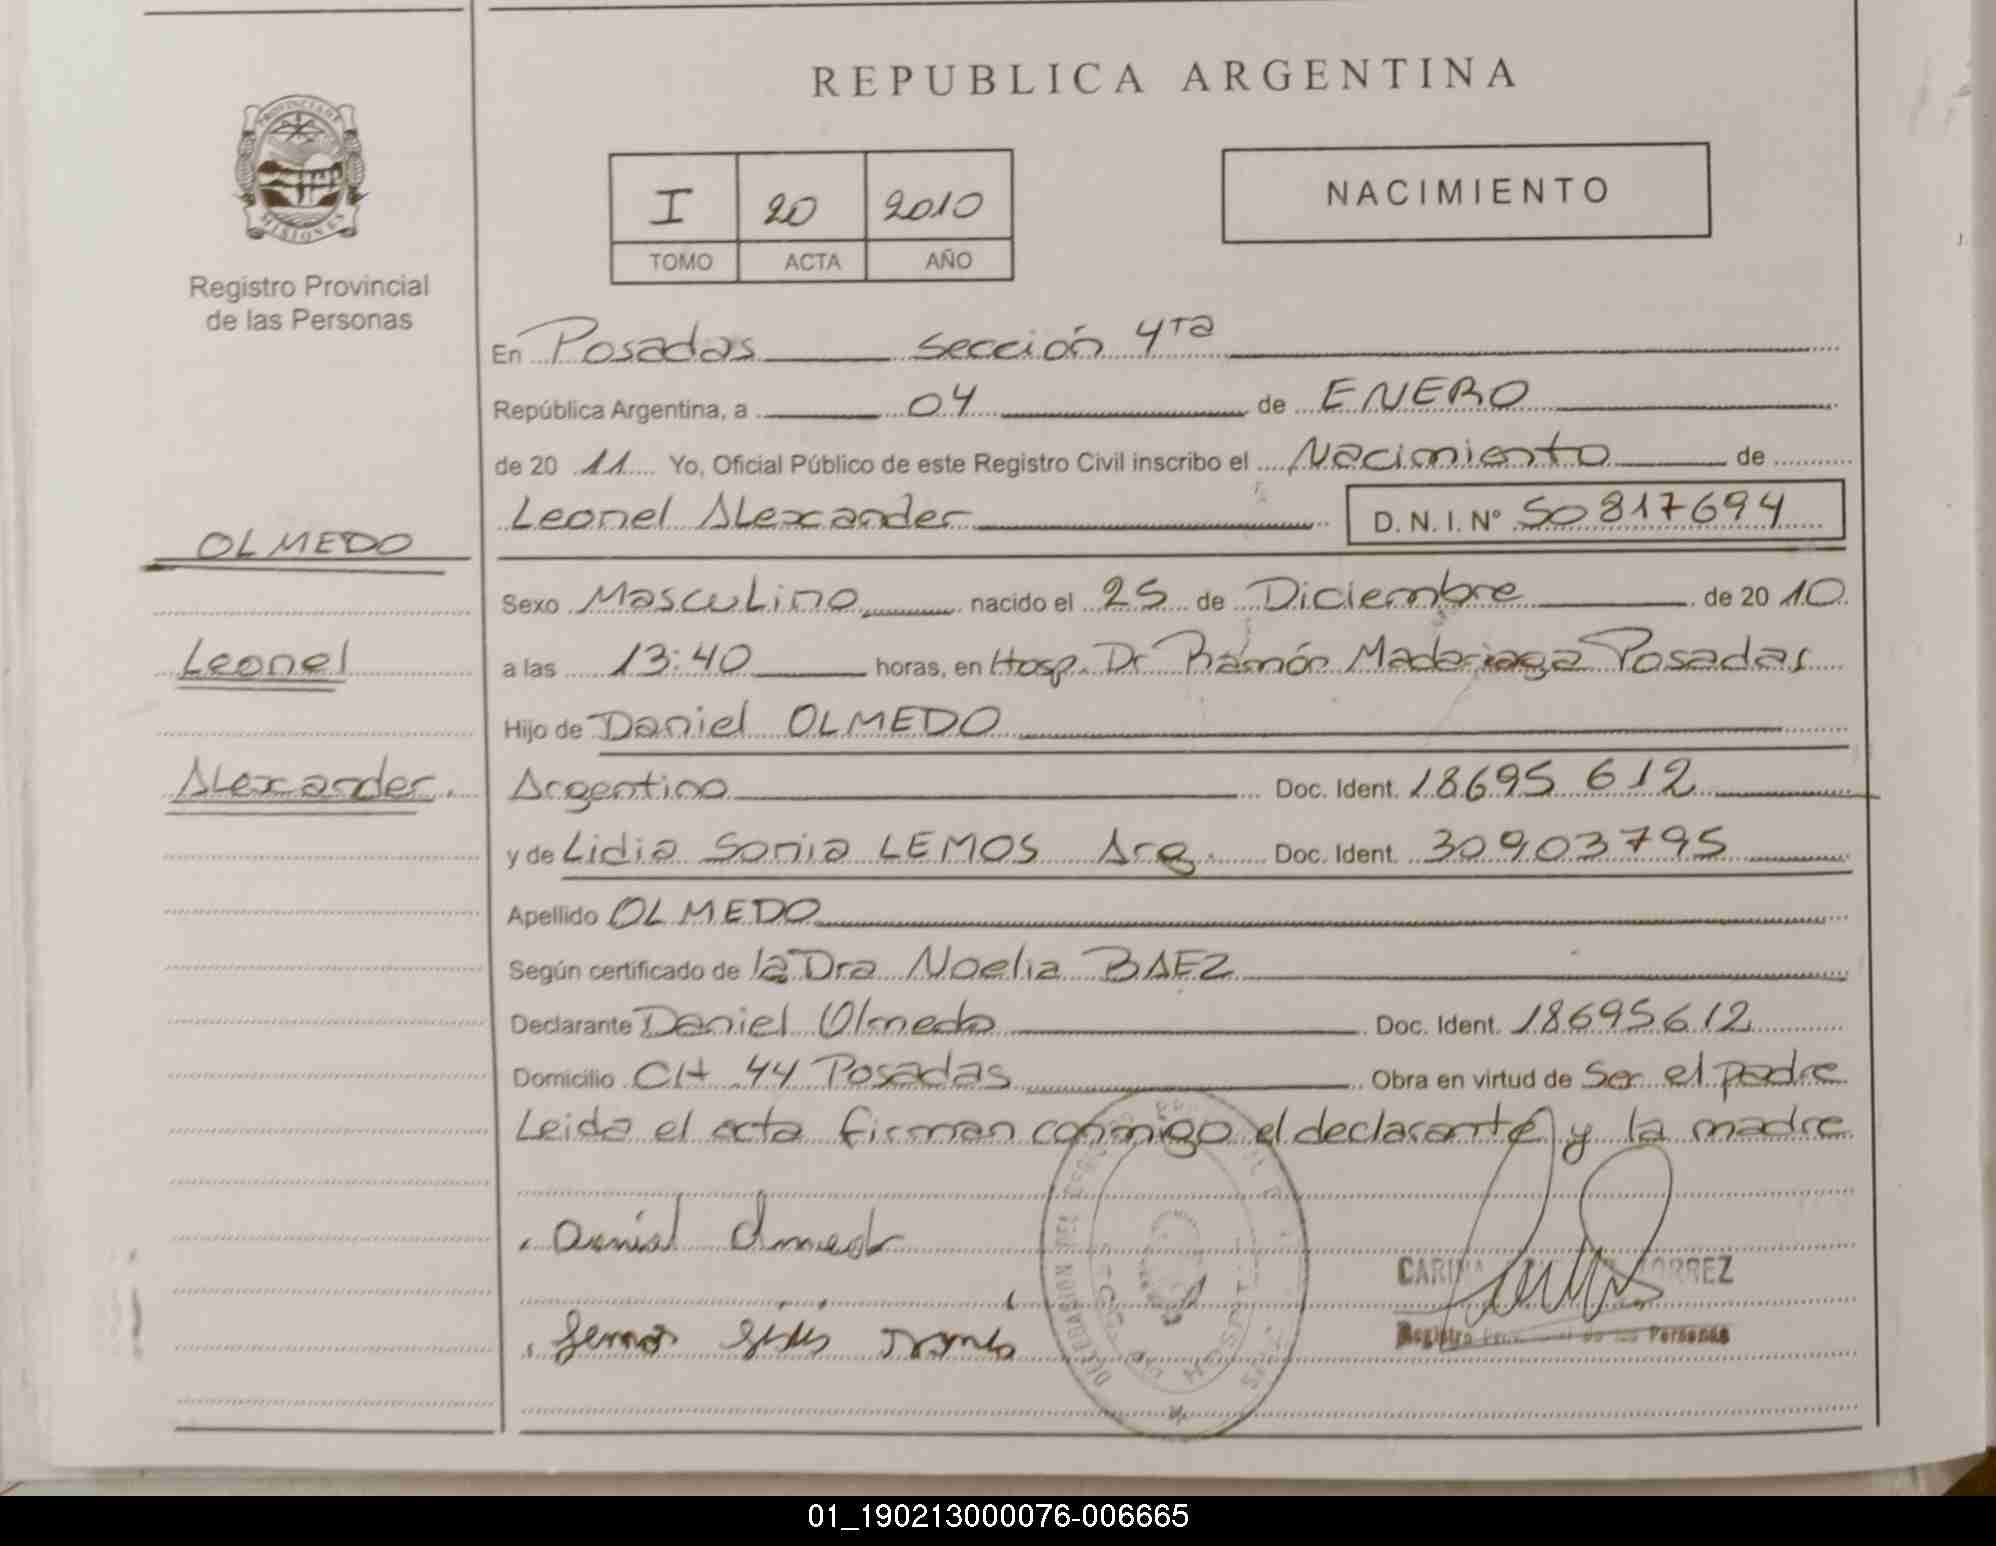 REPUBLICA ARGENTINA
PROVINCIA DE
MISIONES
Registro Provincial
de las Personas
I 20 2010
TOMO ACTA AÑO
NACIMIENTO
En Posadas Sección 4ta
República Argentina, a 04 de ENERO
de 20 11 Yo, Oficial Público de este Registro Civil inscribo el Nacimiento de
Leonel Alexander D. N. I. Nº 50817694
OLMEDO
Leonel
Alexander.
Sexo Masculino nacido el 25 de Diciembre de 20 10
a las 13:40 horas, en Hosp. Dr Ramón Madariaga Posadas
Hijo de Daniel OLMEDO
Argentino Doc. Ident. 18695 612
y de Lidia Sonia LEMOS Arg. Doc. Ident. 30903795
Apellido OLMEDO
Según certificado de la Dra Noelia BAEZ
Declarante Daniel Olmedo Doc. Ident. 18695612
Domicilio CH 44 Posadas Obra en virtud de Ser el padre
Leida el acta firman conmigo el declarante y la madre
Daniel Olmedo
CARINA
Registro de las Personas
01_190213000076-006665